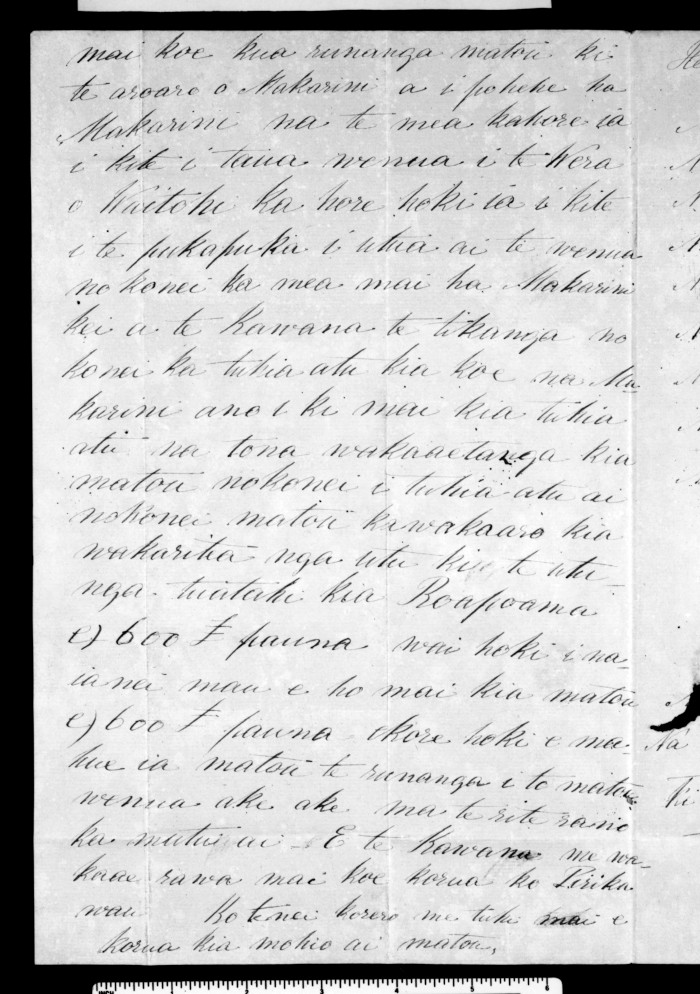 mai koe kua runanga matou ki
te aroaro o Makarini a i pohehe ha
Makarini na te mea kahore ia
i kite i taua wenua i te Wera
o Waitohi ka hore hoki ia i kite
i te pukapuka i utua ai te wenua
no konei ka mea mai ha Makarini
kei a te Kawana te tikanga no
konei ka tuhia atu kia koe na Ma-
karini ano i ki mai kia tuhia
atu na tona wakaaetanga kia
matou nokonei i tuhia atu ai
nokonei matou ka wakaaro kia
wakaritia nga utu ki te utu-
nga tuatahi kia Roapoama
e) 600 £ pauna wai hoki i na-
ianei mau e ho mai kia matou
e) 600 £ pauna ekore hoki e ma-
hue ia matou te runanga i to matou
wenua ake ake ma te rite rano
ka mutu ai - E te Kawana me wa-
kaae rawa mai koe korua ko Pirika
wau Ko tenei korero me tuhi mai e
korua kia mohio ai matou,
Na
Ki